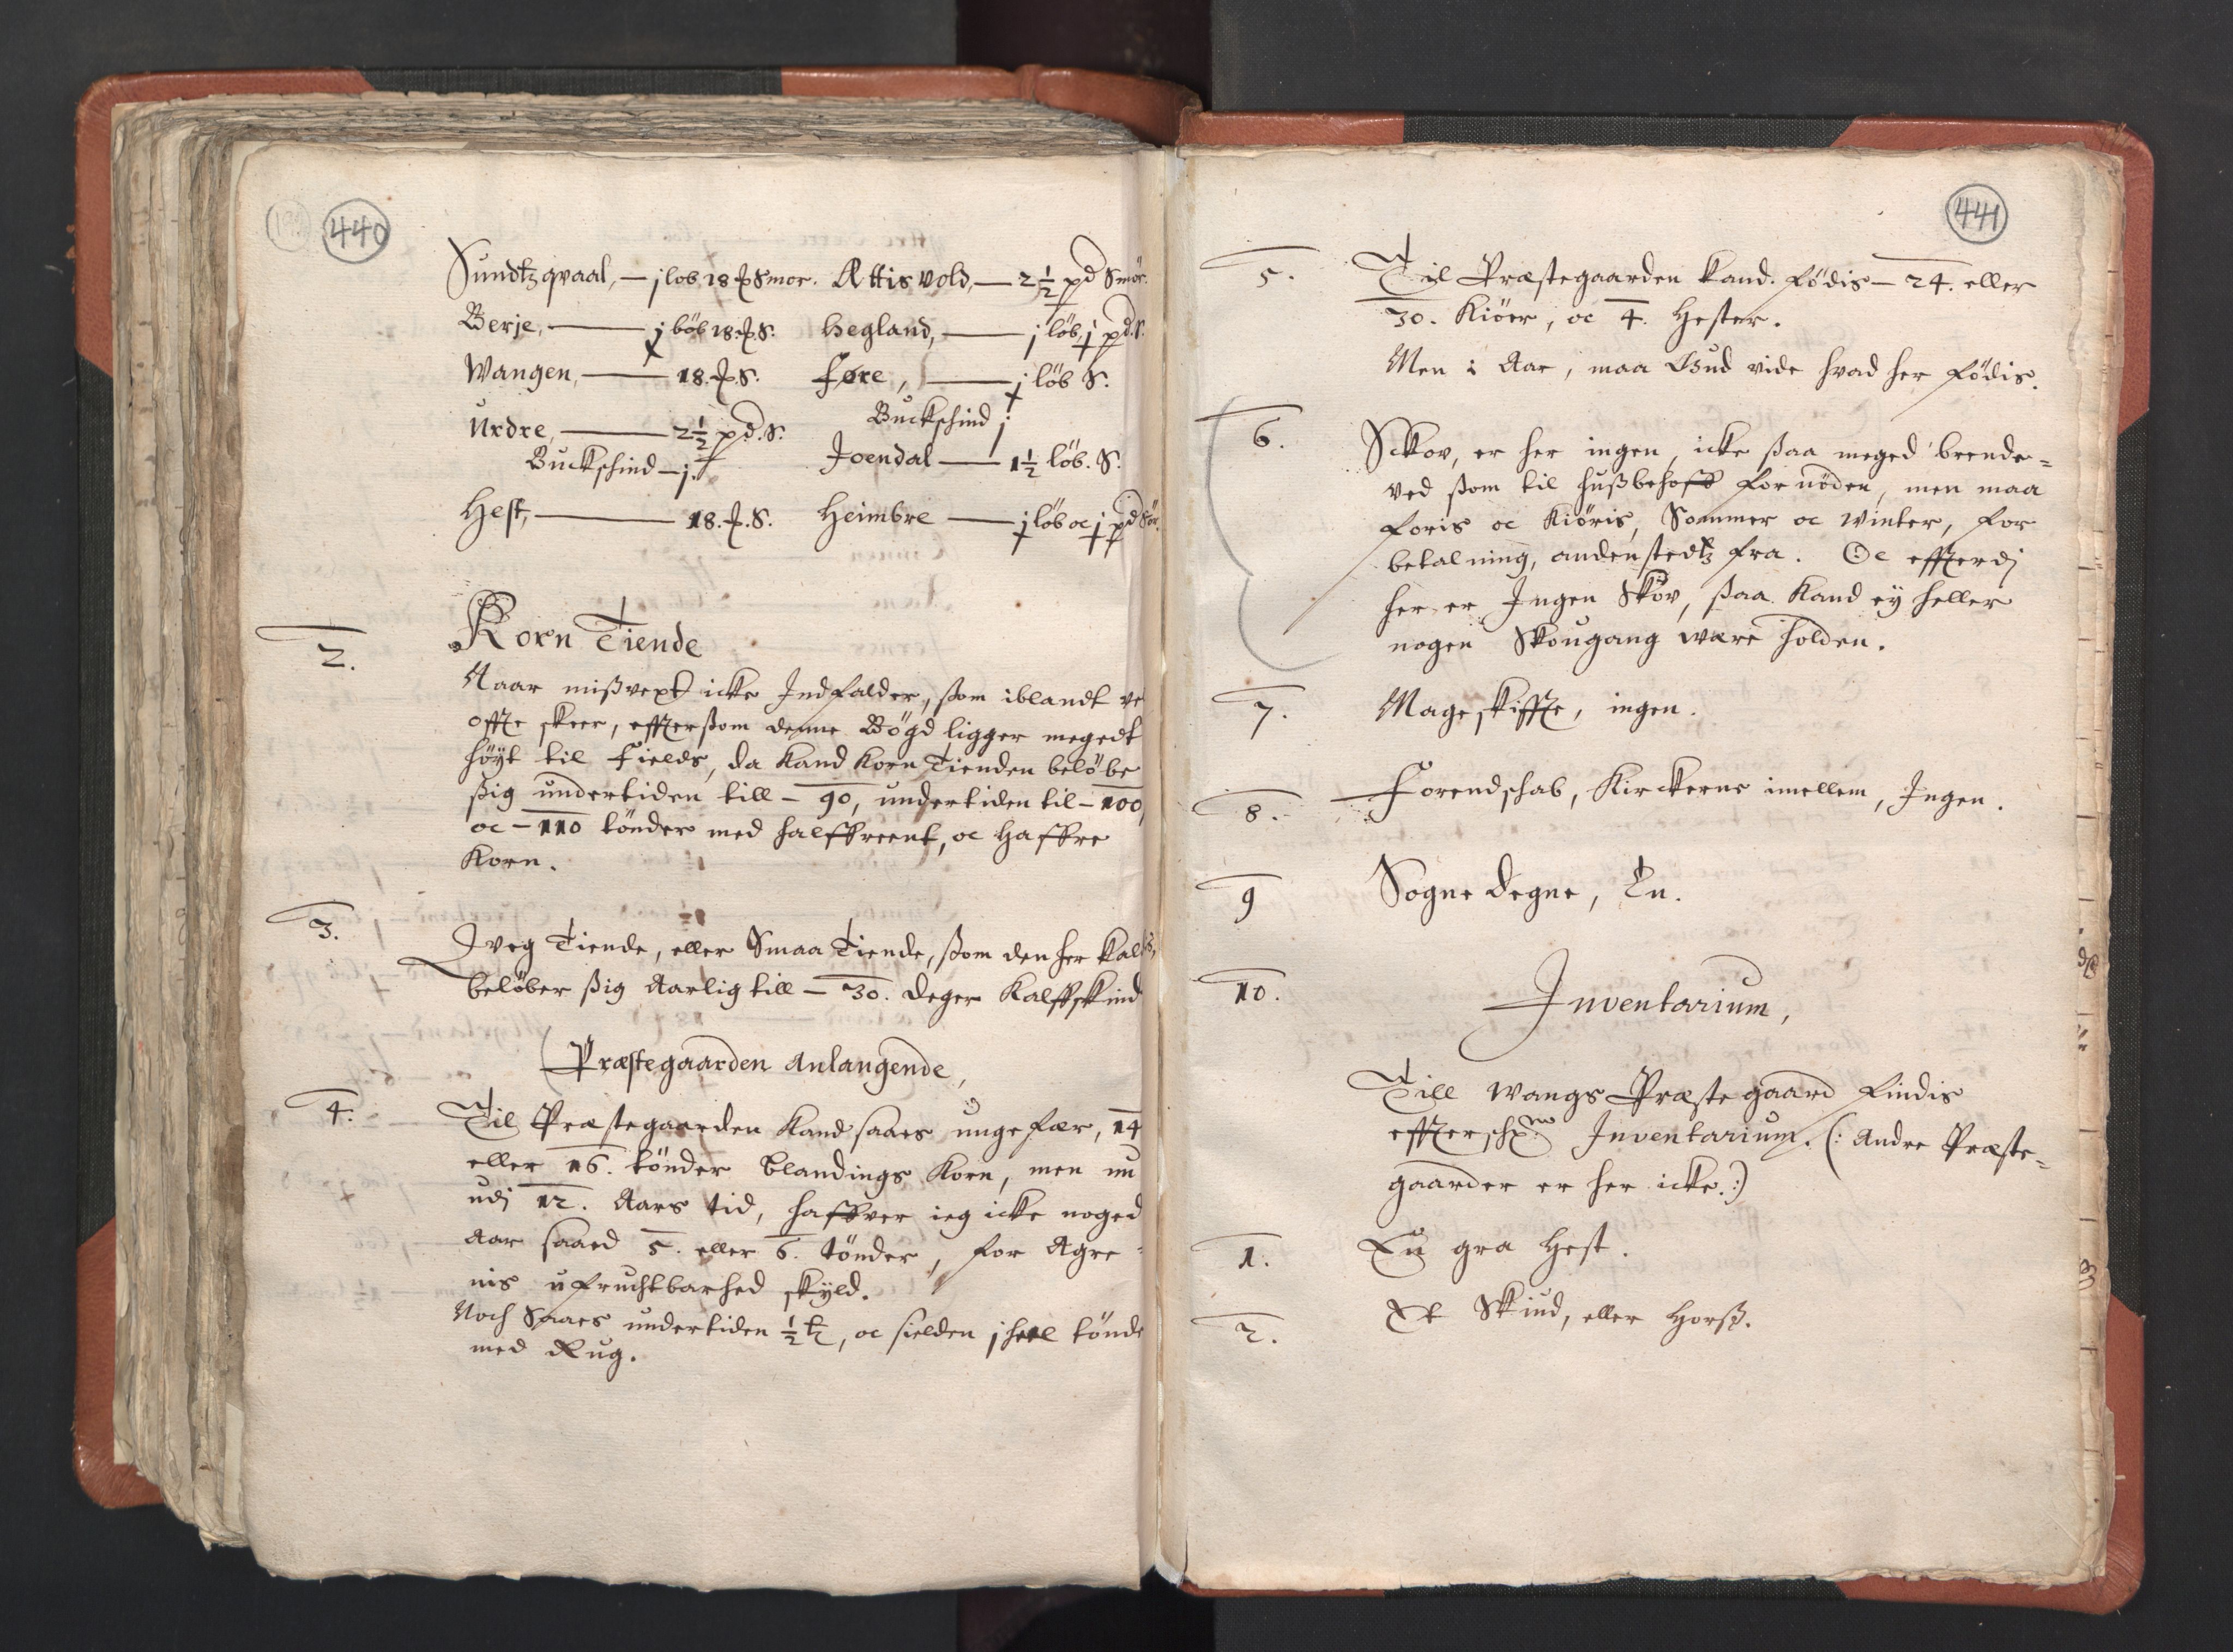 440
Sundtzqvaal, — j lob 18 ℔ Smor. Attisvold, — 2½ pd Smör.
Berje, — j löb 18.℔.S. Hegland, — j löb, j pd.S.
Wangen, — 18.℔.S. Føre, — j löb S.
Buckschind j
Urdre, — 2½ pd.S.
Buckschind — j. Joendal — 1½ löb. S.
Hest, — 18.℔.S. Heimbre — j löb oc j pd Sör.
2. Korn Tiende
Naar mißvext icke Indfalder, ßom iblandt
offte skeer, effterßom denne Bögd ligger megedt
höyt til Fields, da kand Korn Tienden belöbe
ßig undertiden till — 90, undertiden til — 100,
oc — 110 tönder med halffreent, oc Haffre
Korn.
3. Qveg Tiende, eller Smaa Tiende, ßom den her
belöber ßig Aarlig till — 30. deger Kalffskind
Præstegaarden Anlangende,
4. Til Præstegaarden kand saaes ungefær, 14
eller 16. tönder blandings Korn, men nu
udj 12. Aars tid, haffver ieg icke noged
Aar saaed 5. eller 6. tönder, for Agre-
nis ufruchtbarhed skyld.
Noch Saaes undertiden ½ t, oc sielden j heel tönde
med Rug.
441
5. Til Præstegaarden kand. födis — 24. eller
30. Kiöer, oc 4. Hester.
Men i Aar, maa Gud vide hvad her födis.
6. Skov, er her ingen, icke ßaa meged brende=
ved ßom til hußbehoff for nöden, men maa
föris oc Kiöris, Sommer oc Winter, for
betalning, andenstedtz fra. Oc effterdj
her er Ingen Skov, ßaa kand ey heller
nogen Skougang være holden.
7. Mageskiffte, ingen.
8. Forendschab, Kirckerne imellem, Ingen.
9 Sogne degne, En.
10. Inventarium,
Till Wangs Præstegaard findis
effterschne Inventarium. (: Andre Præste=
gaarder er her icke.:)
1. En graa Hest.
2. Et Skiud, eller Horß.